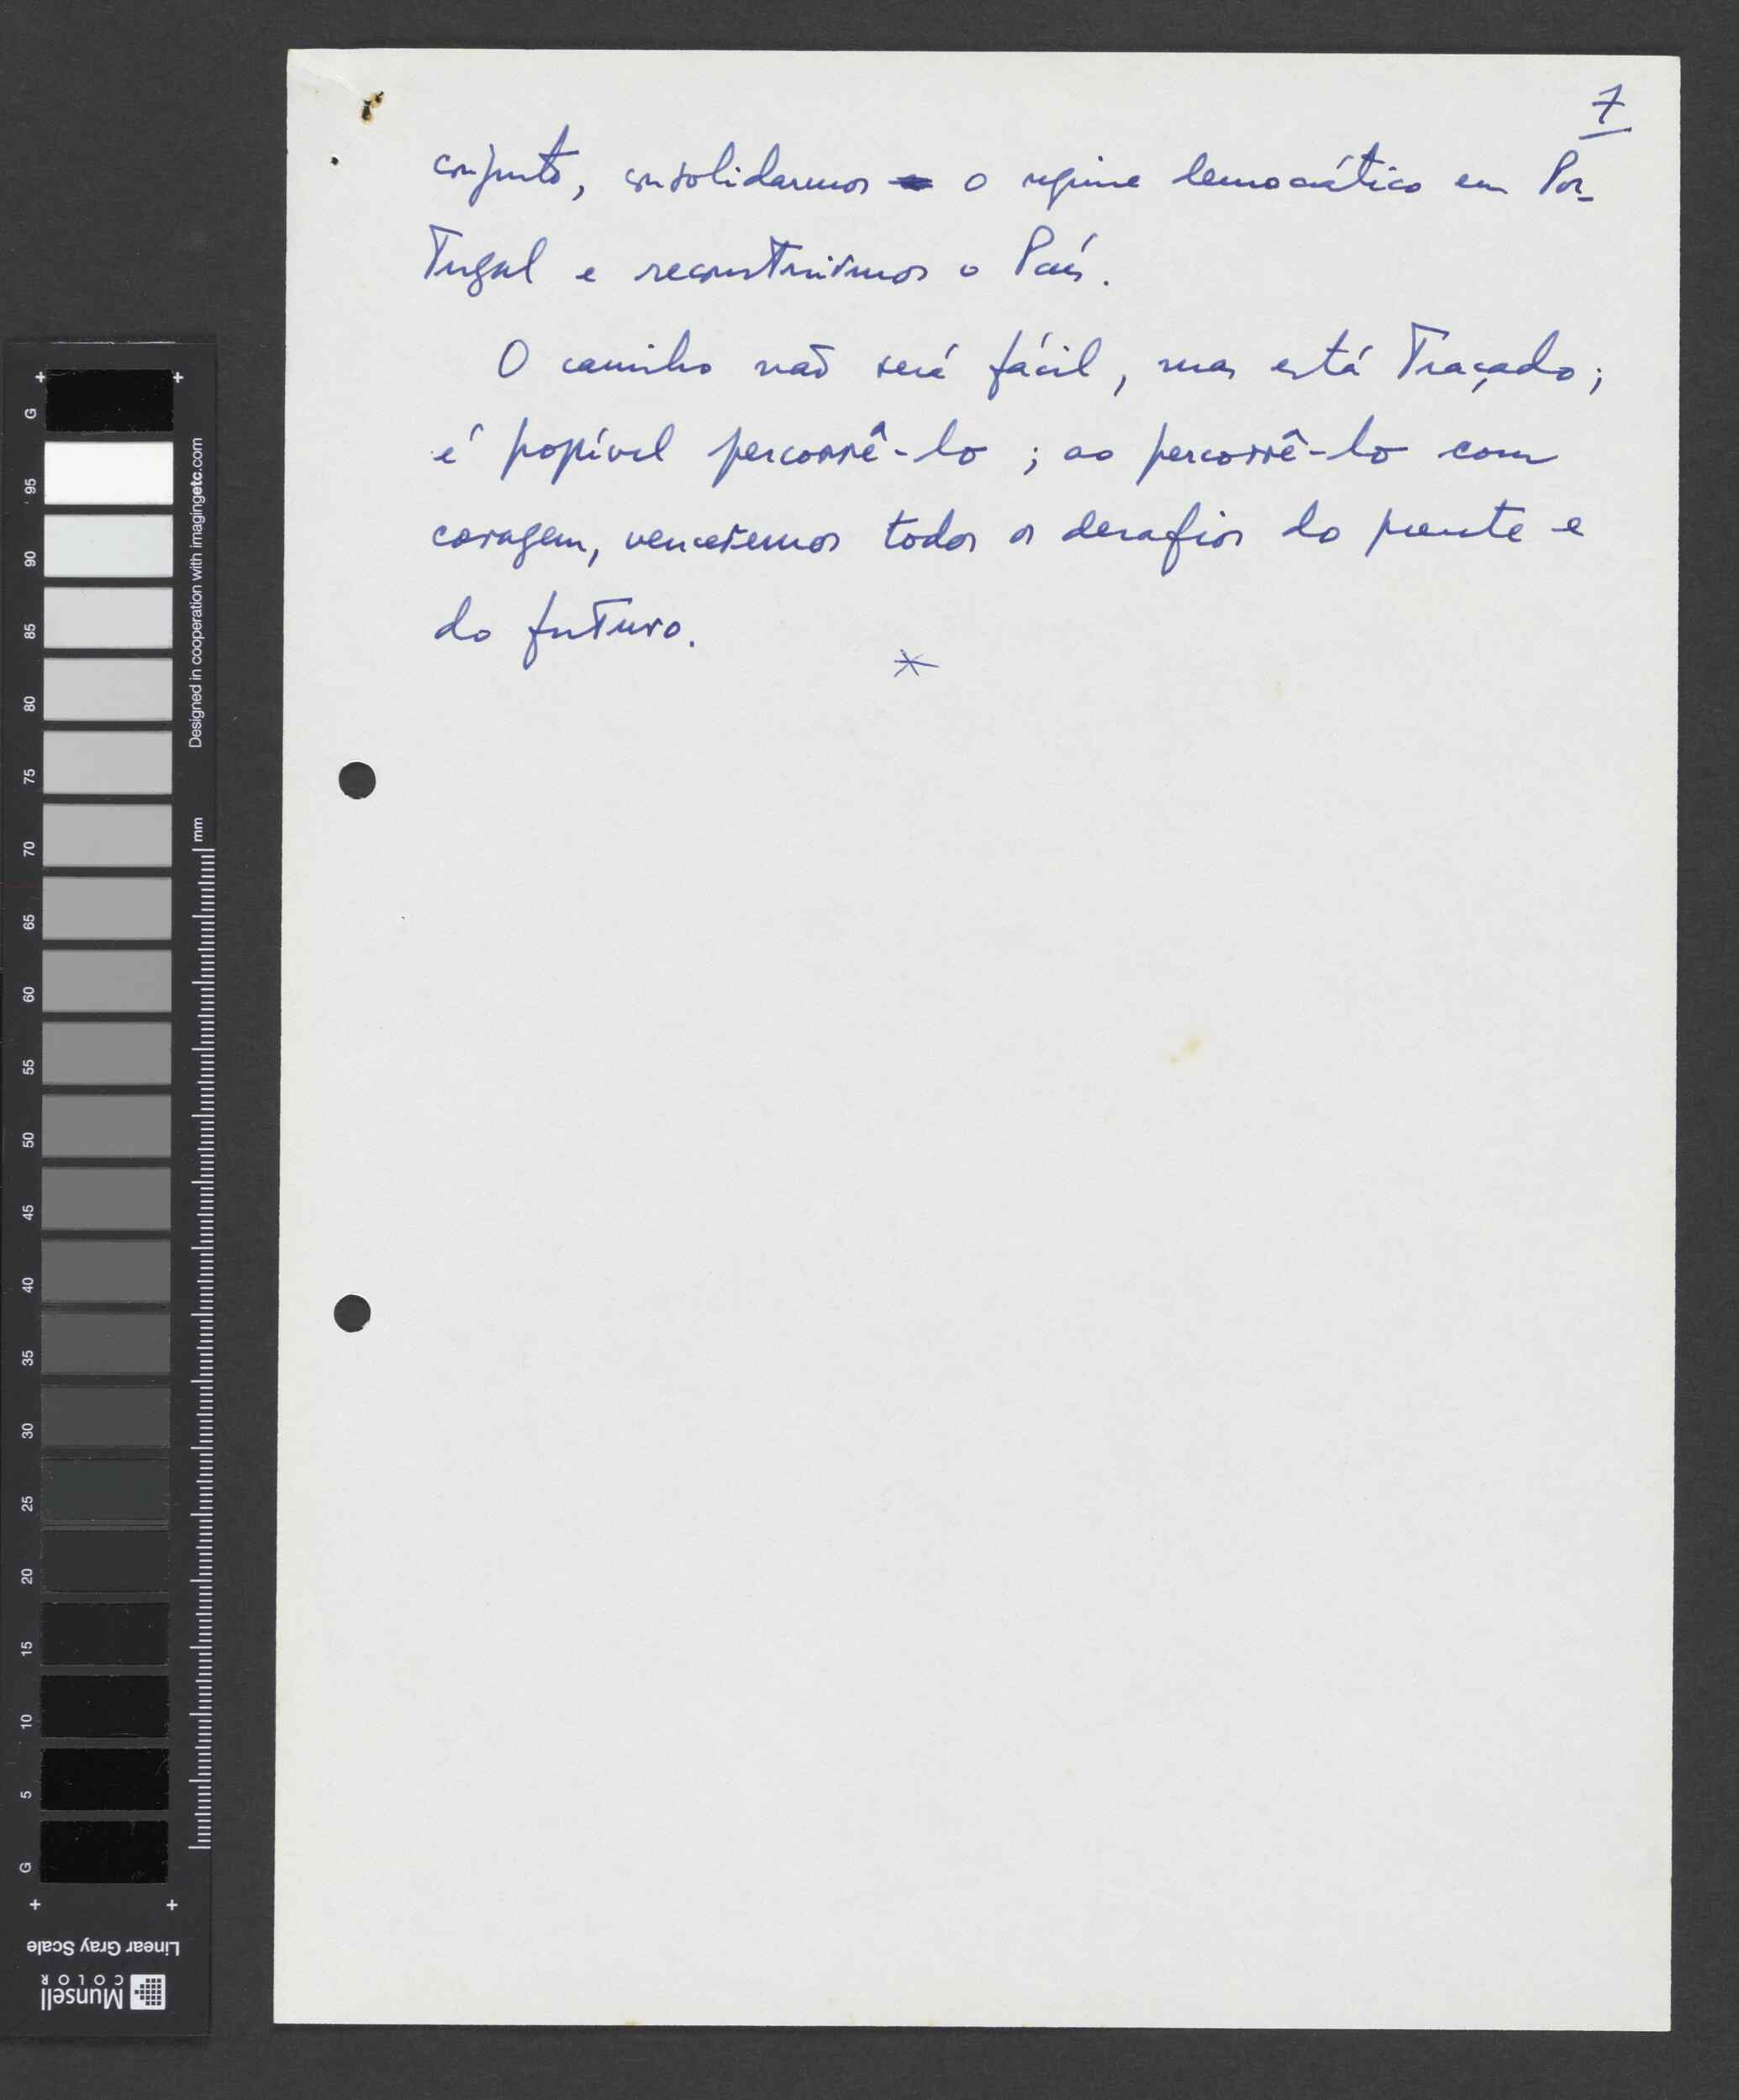 7
conjunto, consolidarmos o regime democrático em Por-
tugal e reconstruirmos o País.
O caminho não será fácil, mas está traçado;
é possível percorrê-lo; ao percorrê-lo com
coragem, venceremos todos os desafios do presente e
do futuro.
*
G
95
90
85
80
75
70
65
60
55
50
45
40
35
30
25
20
15
10
5
G
Designed in cooperation with imagingetc.com
mm
Linear Gray Scale
Munsell
COLOR